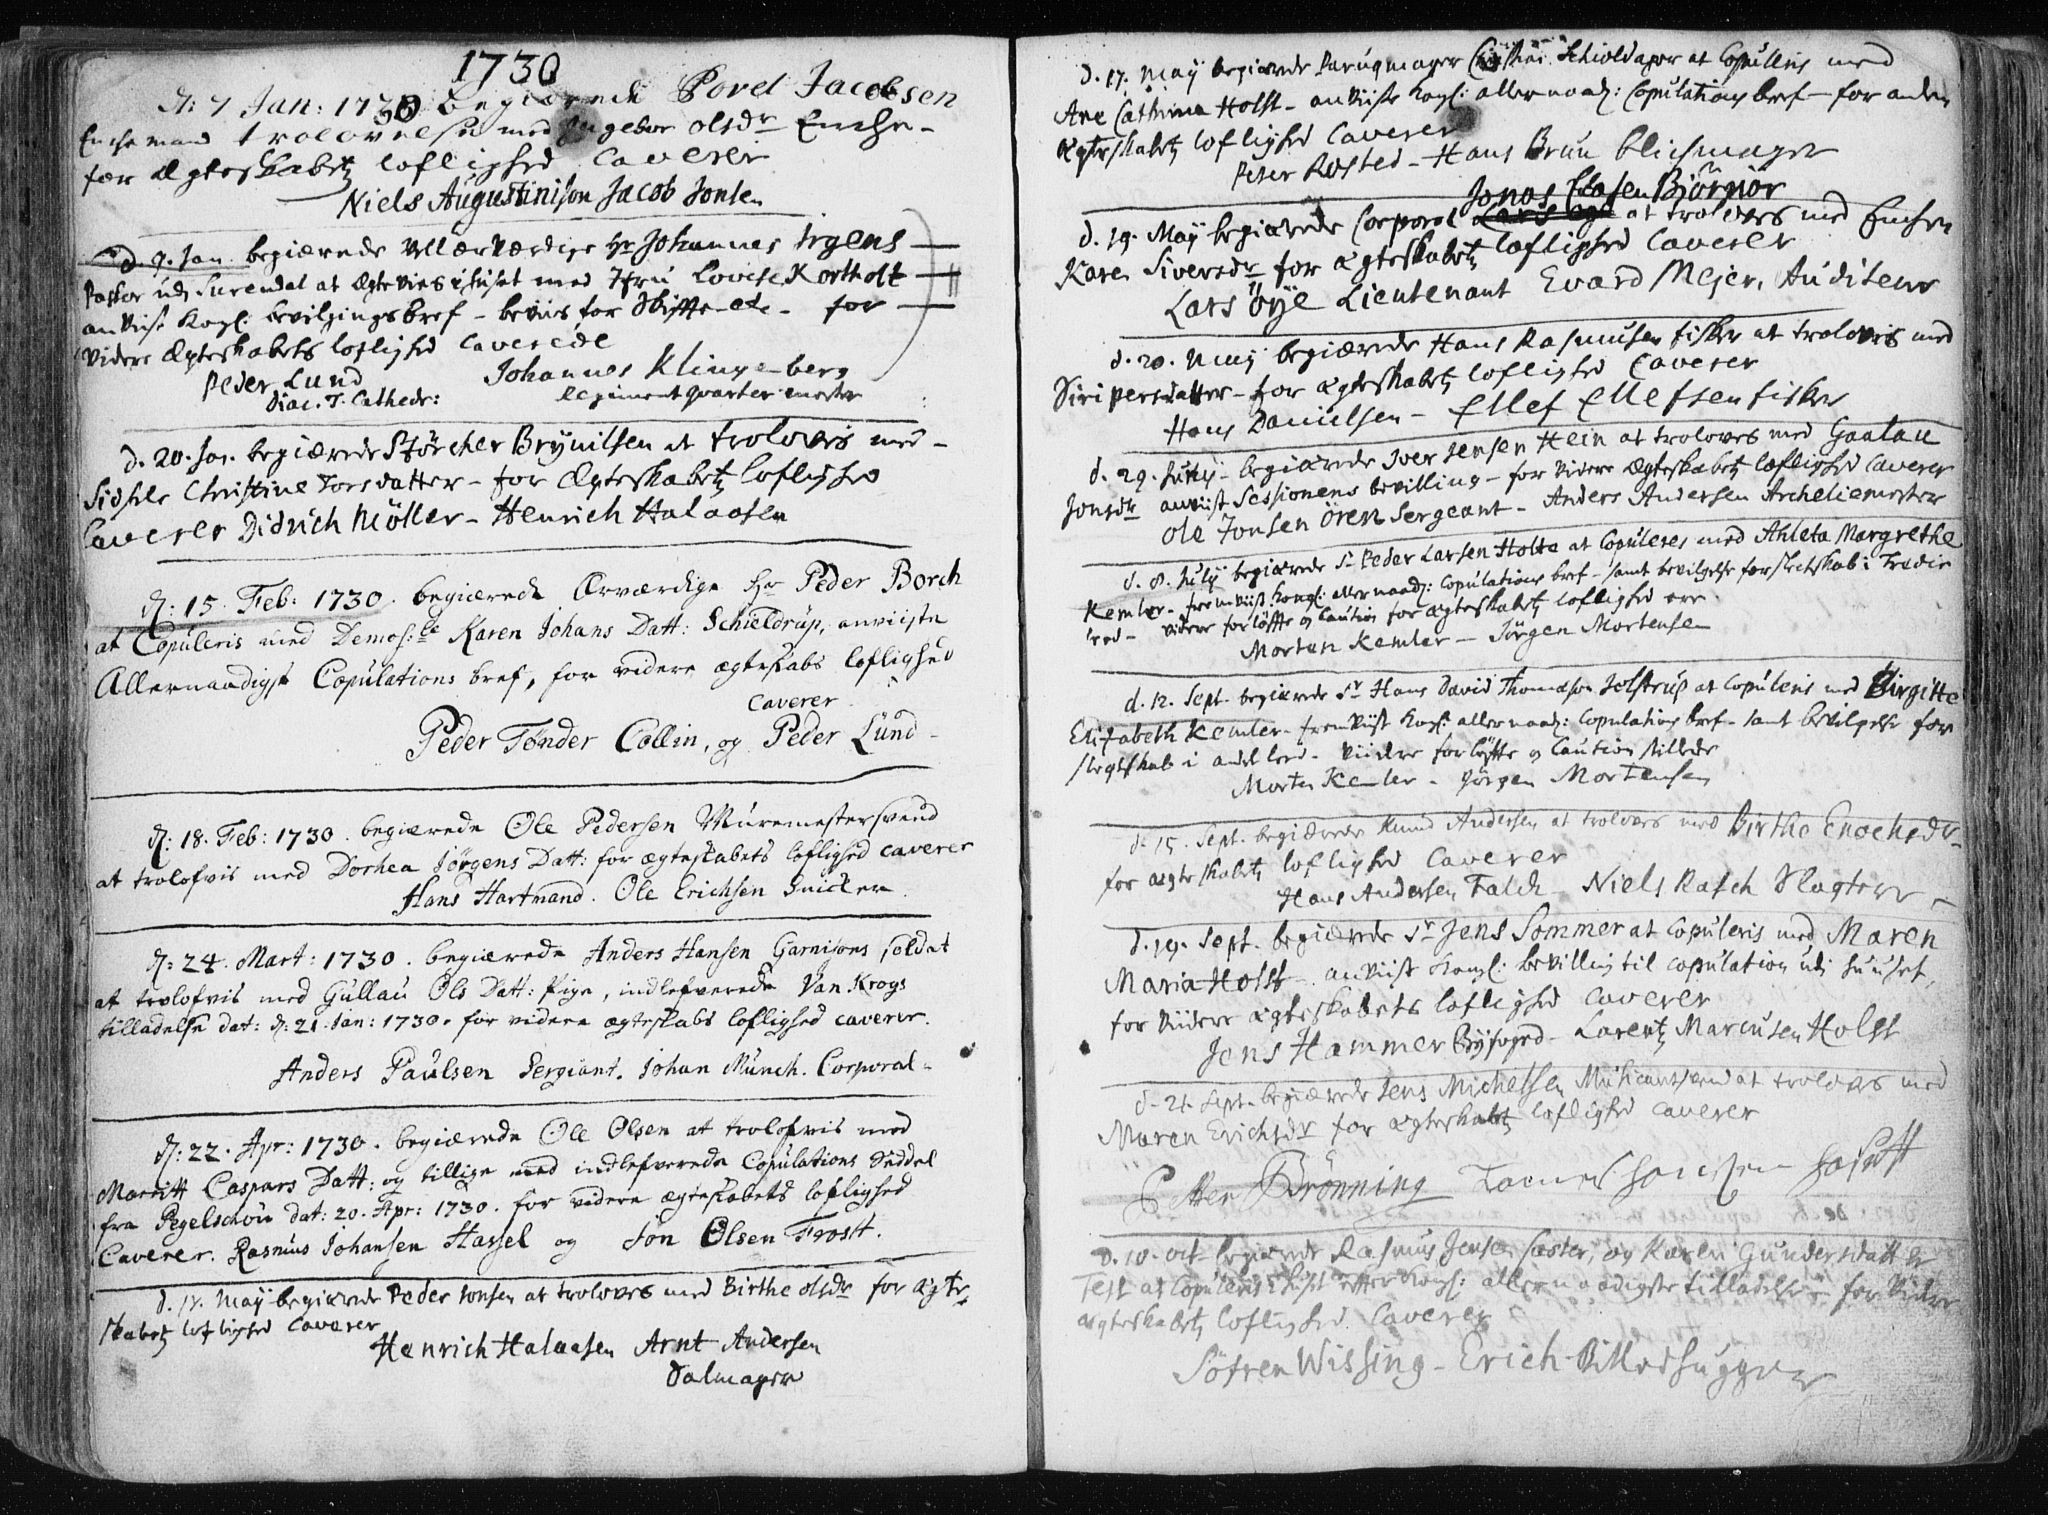 1730
d: 7 Jan: 1730 begiærede Povel Jacobsen
Enche mand trolovelse med Ingebor olsdr Enche-
for Ægteskabetz loflighed Caverer
Niels Augustinison Jacob Jonsen
d. 9. Jan. begiærede Vellærværdige Hr Johannes Irgens
Pastor udj Surendal at ægtevies i huset med Jfru Lovise Kortholt
anviist Kongl: bevilgingsbref - beviis for Skiffte etc - for
videre Ægteskabets loflighed caverede
Peder Lund Johannes Klingenberg
Diac. T. Cathedr: Regiment quarteermester
d. 20. Jan. begiærede Störcher Brÿnilsen at trolovis med -
Sidsele Christine Torsdatter - for Ægteskabetz loflighed
Caverer Didrich Möller - Henrich Halaasen
d: 15. Feb: 1730. begiærede Ærværdige Hr Peder Borch
at Copuleris med Demos:lle Karen Johans Datt: Schieldrup, anviiste
Allernaadigst Copulations bref, for videre ægteskabs loflighed
caverer
Peder Tønder Collin, og Peder Lund -
d: 18. Feb: 1730. begiærede Ole Pedersen Muremestersvend
at trolofvis med Dorhea Jørgens Datt: for ægteskabets loflighed caverer
Hans Hartmand. Ole Erichsen Snicker
d: 24. Mart: 1730. begiærede Anders Hansen Garnisons soldat
at trolofvis med Gullau Ols Datt: Pige, indlefverede Van Krogs
tilladelse dat: d: 21. Jan: 1730. for videre ægteskabs loflighed caverer.
Anders Paulsen Sergiant. Johan Munch. Corporal -
d: 22. Apr: 1730. begiærede Ole Olsen at trolofvis med
Marritt Caspars Datt: og tillige med indlefverede Copulations Seddel
fra Pegelschou dat: 20. Apr: 1730. for videre ægteskabets loflighed
Caverer. Rasmus Johansen Hassel og Jon Olsen Frostt.
d. May begiærede Peder Jonsen at trolovis med Birthe olsdr for ægte
skabetz loflighed Caverer
Henrich Halaasen Arnt Andersen
Salmager
d. 17. Maÿ begiærede Paruqmager Schioldager at Copulleris med
Ane Cathrina Holst - anviiste Kongl: allernaad: Copulations bref - for anden
ægteskabetz loflighed Caverer
Peter Rosted - Hans Brun blichmager
Jonas Clasen Biörnör
d. 19. Maÿ begiærede Corporal at trolovis med Enchen
Karen Siversdr for ægteskabetz loflighed Caverer
Lars Öye Lieutenant Evard Mejer, Auditeur
d. 20. Maÿ begiærede Hans Rasmusen fisker at trolovis med
Siri Persdatter - for ægteskabetz loflighed Caverer
Hans Danielsen - Ellef Ellefsen fisker
d. 29. begiærede Iver Jensen Hein at troloves med Gaatau
Jonsdr anviist Sessionens bevilling - for videre ægteskabetz loflighed Caverer
Ole Jonsen Ören Sergeant - Anders Andersen Archeliemester
d. 8. Julÿ begiærede Sr Peder Larsen Holte at Copuleres med Ahleta Margrethe
Kemler - fremviist Kongl: allernaad: Copulations bref - samt bevilgelse for slectskab i Tredie
leed - videre forløffte og Caution for ægteskabetz loflighed ere
Morten Kemler - Jörgen Mortensen
d. 12. Sept. begiærede Sr Hans David Thomasson Jelstrup at Copuleris med Birgitte
Elisabeth Kemler - fremviist Kongl: allernaad: Copulations bref - samt bevilgelse for
slegtskab i andet leed - videre forløffte og Caution stillede
Morten Kemler - Jörgen Mortensen
d. 15. Sept. begiærede Knud Andersen at troloves med Birthe Enochsdr -
for ægteskabetz loflighed Caverer
Hans Andersen Falch - Niels Rasch Slagter -
d. 19. Sept. begiærede Sr Jens Sommer at Copuleris med Maren
Maria Holst - anviist Kongl: bevilling til copulation udj huuset,
for videre ægteskabets loflighed Caverer
Jens Hammer Bÿfoged - Larentz Marcusen Holst
d. 21. Sept. begiærede Jens Michelsen Musicantsvend at trolovis med
Maren Erichsdr for ægteskabetz loflighed Caverer
Petter Brönning
d. 10. Oct. begiærede Rasmus Jensen og Karen Gundersdatter
at Copuleris i huset effter Kongl: allernaadigste tilladelse - for videre
ægteskabetz loflighed Caverer
Söfren Wissing - Erich Billedhugger